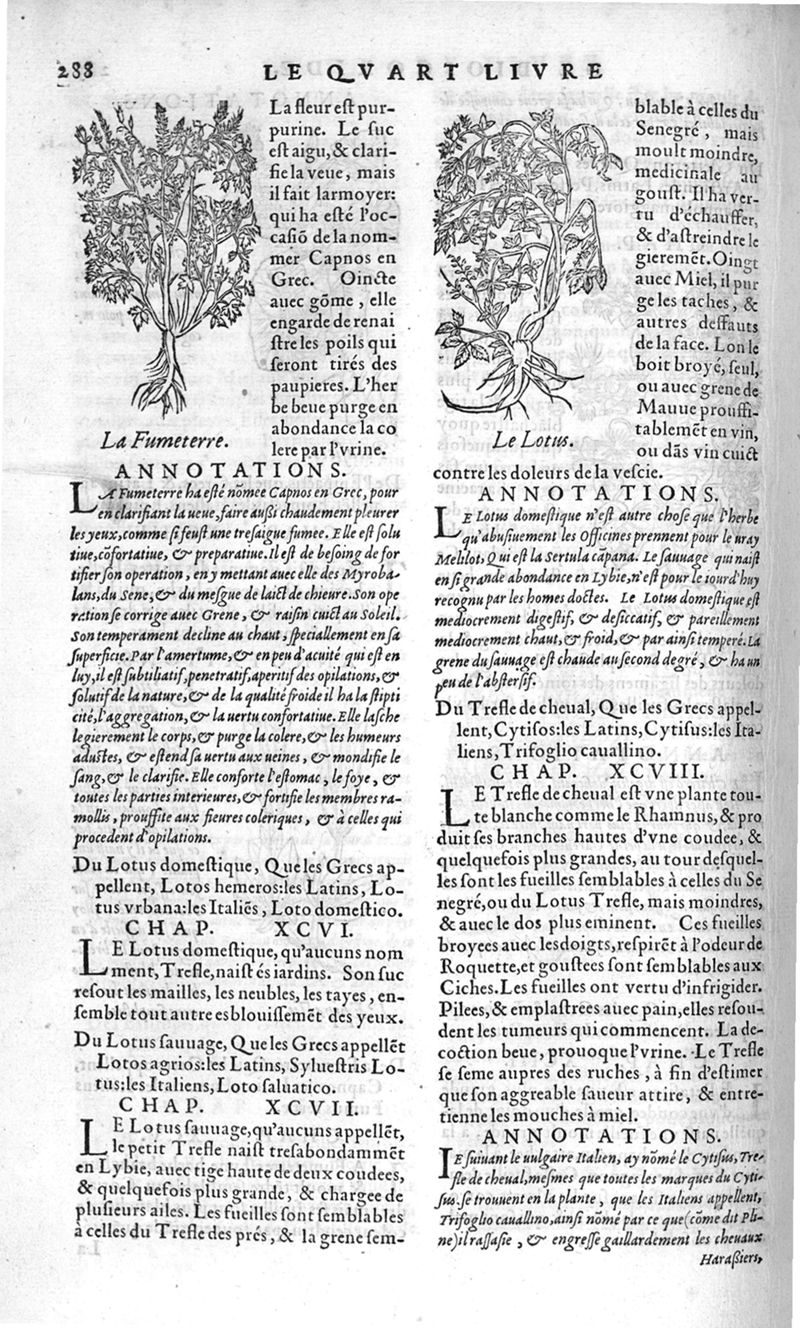 288
LE QVART LIVRE
La fleur est pur-
purine. Le suc
est aigu, & clari-
fie la veue, mais
il fait larmoyer:
qui ha esté l'oc-
casiõ de la nom-
mer Capnos en
Grec. Oincte
auec gõme, elle
engarde de renai
stre les poils qui
seront tirés des
paupieres. L'her
be beue purge en
abondance la co
lere par l'vrine.
La Fumeterre.
ANNOTATIONS.
LA Fumeterre ha esté nõmee Capnos en Grec, pour
en clarifiant la ueue, faire außi chaudement pleurer
les yeux, comme si feust une tresaigue fumee. Elle est solu
tiue, cõfortatiue, & preparatiue. Il est de besoing de for
tifier son operation, en y mettant auec elle des Myroba-
lans, du Sene, & du mesgue de laict de chieure. Son ope
ration se corrige auec Grene, & raisin cuict au Soleil.
Son temperament decline au chaut, speciallement en sa
superficie. Par l'amertume, & en peu d'acuité qui est en
luy, il est subtiliatif, penetratif, aperitif des opilations, &
solutif de la nature, & de la qualité froide il ha la stipti
cité, l'aggregation, & la uertu confortatiue. Elle lasche
legierement le corps, & purge la colere, & les humeurs
adustes, & estend sa uertu aux ueines, & mondifie le
sang, & le clarifie. Elle conforte l'estomac, le foye, &
toutes les parties interieures, & fortifie les membres ra-
mollis, prouffite aux fieures coleriques, & à celles qui
procedent d'opilations.
Du Lotus domestique, Que les Grecs ap-
pellent, Lotos hemeros: les Latins, Lo-
tus vrbana: les Italiẽs, Loto domestico.
CHAP. XCVI.
LE Lotus domestique, qu'aucuns nom
ment, Trefle, naist és iardins. Son suc
resout les mailles, les neubles, les tayes, en-
semble tout autre esblouissemẽt des yeux.
Du Lotus sauuage, Que les Grecs appellẽt
Lotos agrios: les Latins, Syluestris Lo-
tus; les Italiens, Loto saluatico.
CHAP. XCVII.
LE Lotus sauuage, qu'aucuns appellẽt,
le petit Trefle naist tresabondammẽt
en Lybie, auec tige haute de deux coudees,
& quelquefois plus grande, & chargee de
plusieurs ailes. Les fueilles sont semblables
à celles du Trefle des prés, & la grene sem-
blable à celles du
Senegré, mais
moult moindre,
medicinale au
goust. Il ha ver-
tu d'échauffer,
& d'astreindre le
gieremẽt. Oingt
auec Miel, il pur
ge les taches, &
autres deffauts
de la face. L on le
boit broyé, seul,
ou auec grene de
Mauue prouffi-
tablemẽt en vin,
ou dãs vin cuict
contre les doleurs de la vescie.
Le Lotus.
ANNOTATIONS.
LE Lotus domestique n'est autre chose que l'herbe
qu'abusiuement les Officines prennent pour le uray
Melilot, Qui est la Sertula cãpana. Le sauuage qui naist
en si grande abondance en Lybie, n'est pour le iourd'huy
recognu par les homes doctes. Le Lotus domestique est
mediocrement digestif, & desiccatif, & pareillement
mediocrement chaut, & froid, & par ainsi temperé. La
grene du sauuage est chaude au second degré, & ha un
peu de l'abstersif.
Du Trefle de cheual, Que les Grecs appel-
lent, Cytisos: les Latins, Cytisus: les Ita-
liens, Trifoglio cauallino.
CHAP. XCVIII.
LE Trefle de cheual est vne plante tou-
te blanche comme le Rhamnus, & pro
duit ses branches hautes d'vne coudee, &
quelquefois plus grandes, au tour desquel-
les sont les fueilles semblables à celles du Se
negré, ou du Lotus Trefle, mais moindres,
& auec le dos plus eminent. Ces fueilles
broyees auec les doigts, respirẽt à l'odeur de
Roquette, et goustees sont semblables aux
Ciches. Les fueilles ont vertu d'infrigider.
Pilees, & emplastrees auec pain, elles resou-
dent les tumeurs qui commencent. La de-
coction beue, prouoque l'vrine. Le Trefle
se seme aupres des ruches, à fin d'estimer
que son aggreable saueur attire, & entre-
tienne les mouches à miel.
ANNOTATIONS.
IE suiuant le uulgaire Italien, ay nõmé le Cytisus, Tre-
fle de cheual, mesmes que toutes les marques du Cyti-
sus. se trouuent en la plante, que les Italiens appellent,
Trifoglio cauallino, ainsi nõmé par ce que (cõme dit Pli-
ne) il rassasie, & engresse gaillardement les cheuaux
Haraßiers,